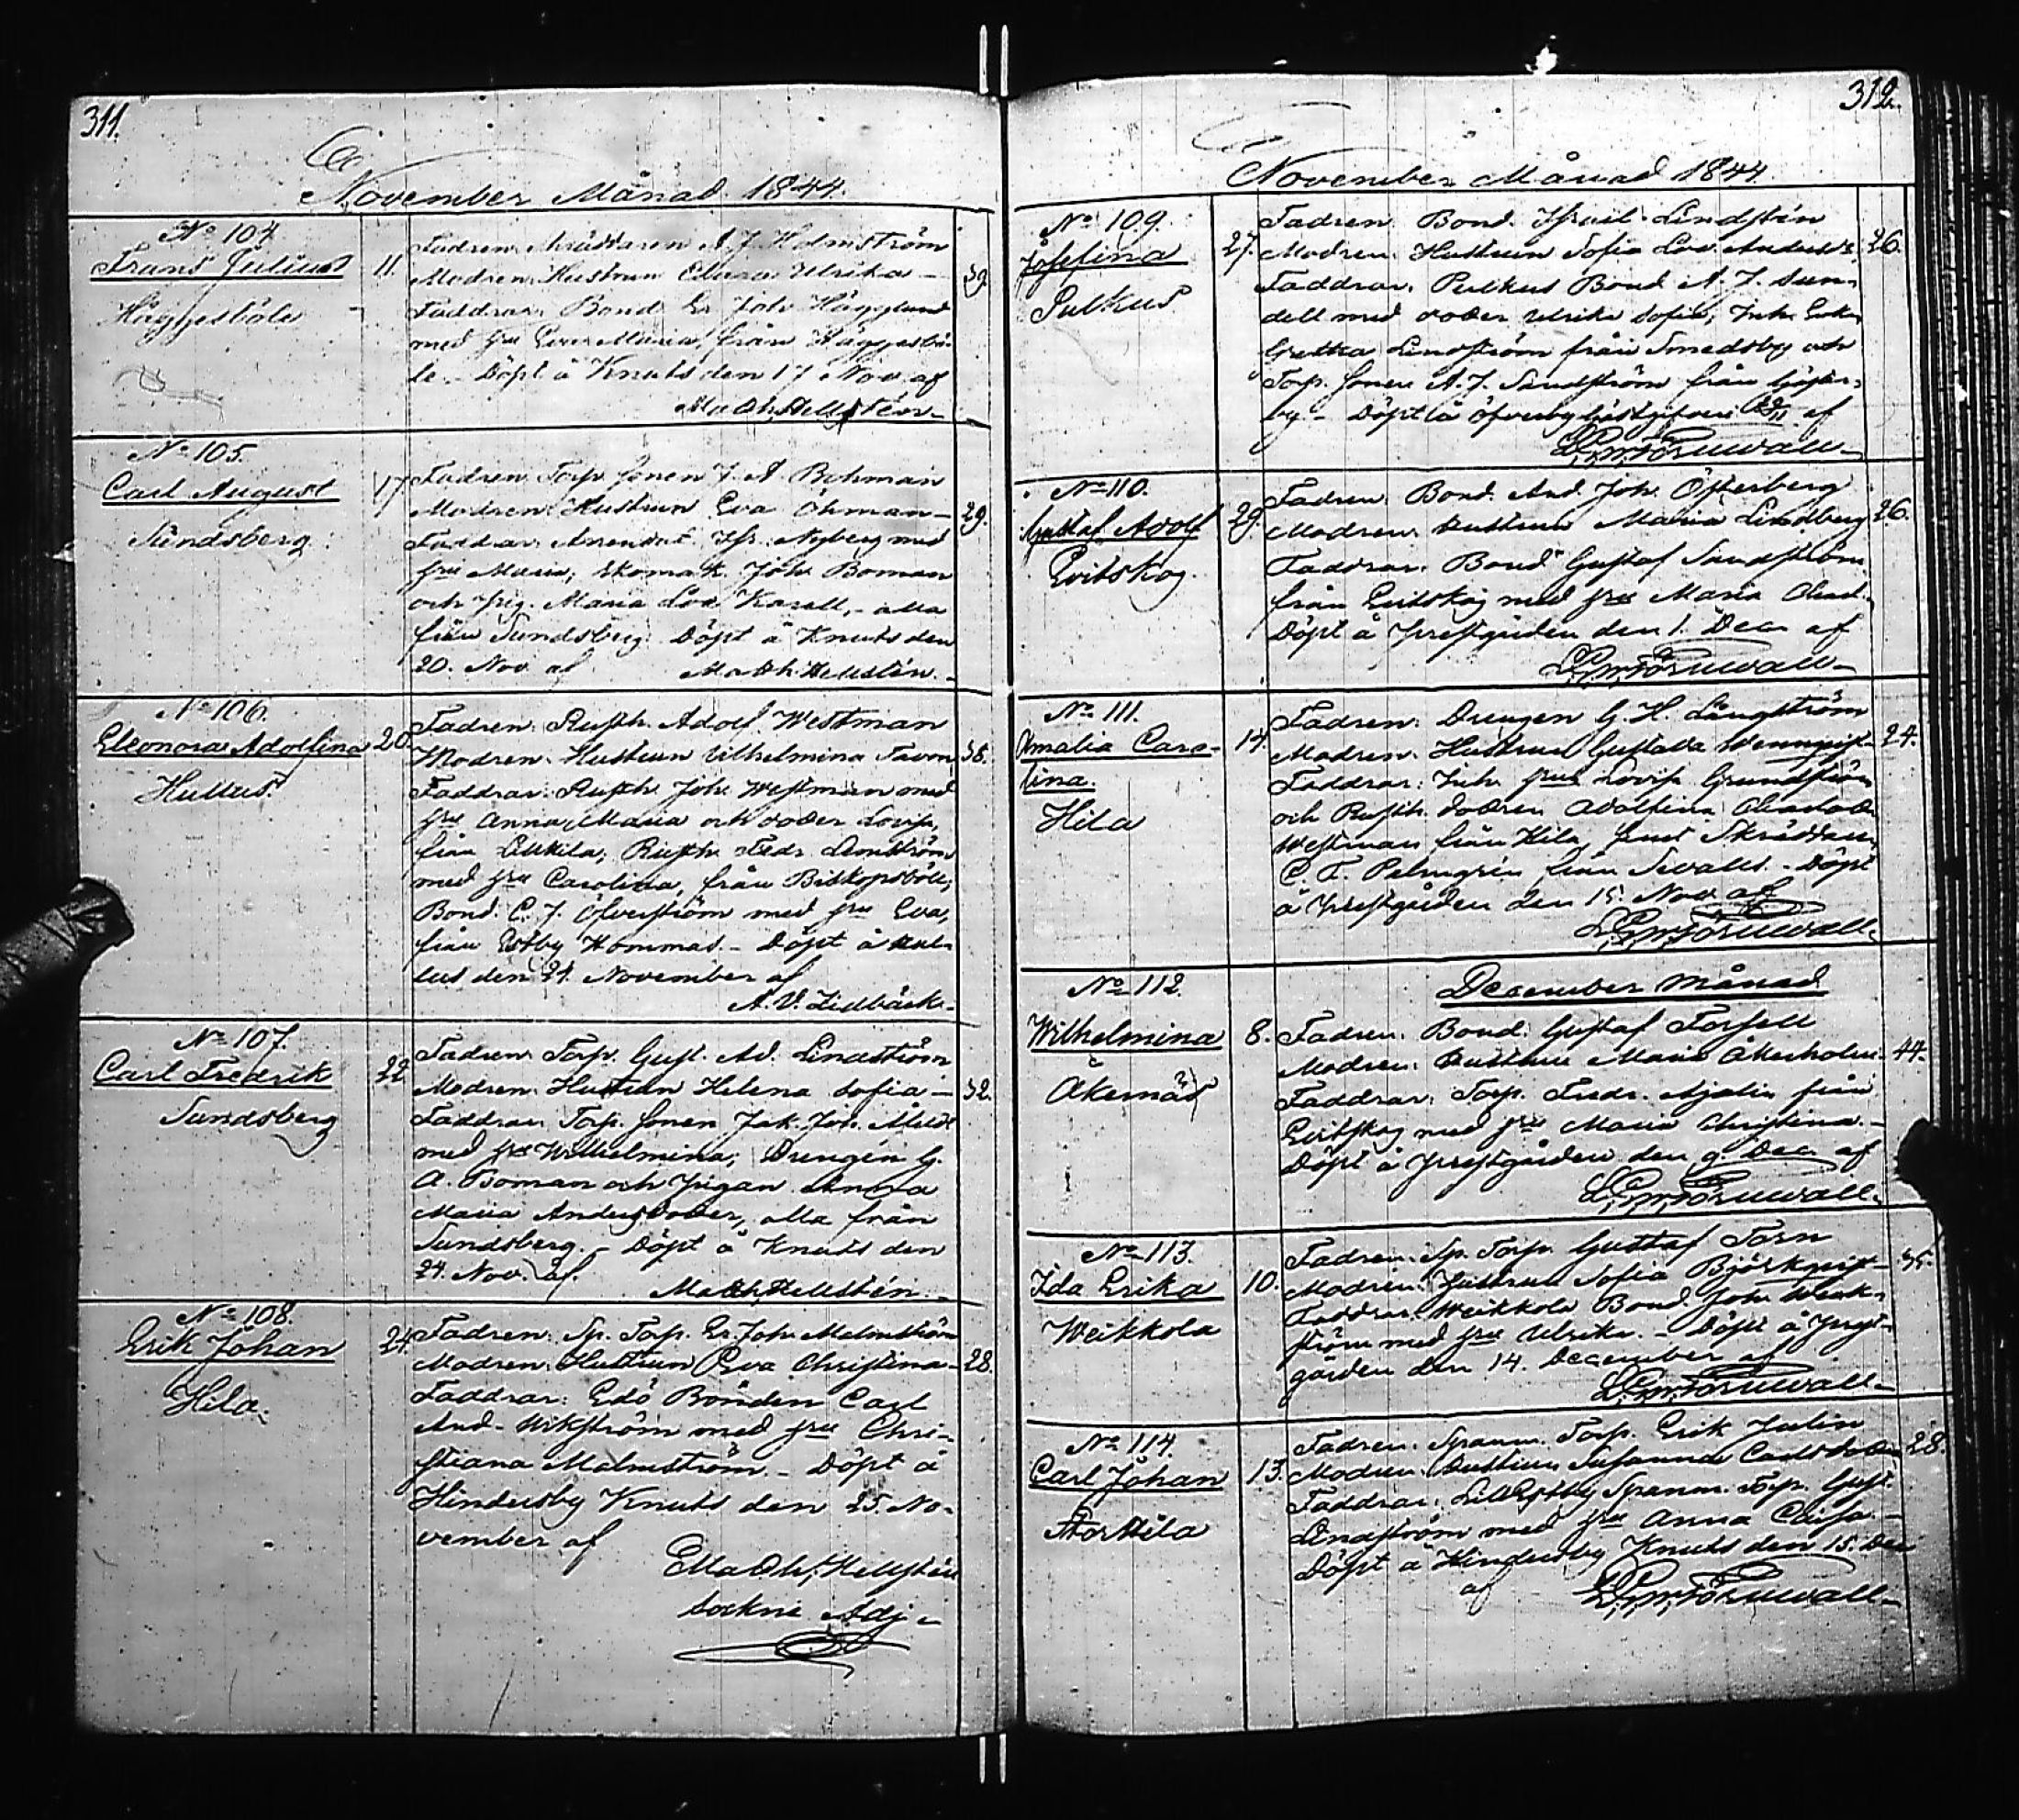 311.
November Månad 1844.
No 104
Frans Julius
Häggesböle
11.
Fadren: Skräddaren A. J. Holmström
Modren: Hustrun Ulrika
Faddrar: Bond. Er. Joh. Hägglund
med hru Eva Maria, från Häggesbö-
le. Döpt å Knuts den 17 Nov. af
Math. Hellstén
39.
No 105.
Carl August
Sundsberg
17
Fadren: Torp. Sonen J. A. Bohman
Modren: Hustrun Eva Öhman
Faddrar: Arendat. Isr. Nyberg med
hru Maria; Skomak. Joh. Boman
och Pig. Maria Lov. Karell, alla
från Sundsberg. Döpt å Knuts den
20. Nov. af Math. Hellstén.
29.
No 106.
Eleonora Adolfina
Hullus.
20.
Fadren: Rusth. Adolf Westman
Modren: Hustrun Vilhelmina
Faddrar: Rusth. Joh. Westman med
hru Anna Maria och doder Lovisa,
från Lillkila; Rusth. Fedr. Lemström
med hru Carolina, från Biskopsböle;
Bond. C. J. Ölverström med hru Eva,
från Estby Kommas. Döpt å Hul-
lus den 24. November af
A. V. Lidbäck
38.
No 107.
Carl Fredrik
Sundsberg
22
Fadren: Torp. Gust. Ad. Lindström
Modren: Hustrun Helena Sofia
Faddrar: Torp. Sonen Jak. Joh.
med hru Wilhelmina; Drengen G.
A. Boman och Pigan Anna
Maria Andersdoder, alla från
Sundsberg. Döpt å Knuts den
24. Nov. af.
Math. Hellstén
32.
No 108.
Erik Johan
Hila.
24.
Fadren: Sp. Torp. Er. Joh. Malmström
Modren: Hustrun Eva Christina
Faddrar: Edö Bonden Carl
And. Wikström med hru Chri-
stiana Malmström. Döpt å
Hindersby Knuts den 25. No-
vember af
Math. Hellstén
Sockne Adj.
28.
312.
November Månad 1844.
No 109.
Josefina
Pulkus.
27.
Fadren: Bond. Israel Lindstén
Modren: Hustrun Sofia Lov. Andersdr.
Faddrar: Pulkus Bond A. J. Sun-
dell med doder Ulrika Sofia; Inh. Enk.
Lindström från Smedsby och
Torp. Sonen A. J. Sandström från
by. Döpt å Öfverby Gästgifveri af
Törnwall
26.
No 110.
Gustaf Adolf
Evitskog.
29.
Fadren: Bond. And. Joh. Österberg
Modren: Hustrun Maria Lindberg
Faddrar: Bond Gustaf Sandström
från Evitskog med hru Maria
Döpt å Prestgården den 1. Dec. af
Törnwall
26.
No 111.
Amalia Caro-
lina.
Hila
14.
Fadren: Drengen G. H. Långström
Modren: Hustrun Gustava Wennqvist
Faddrar: Inh. hrus Lovisa Grundström
och Rusth. dodren Adolfina
Westman från Hila, samt Skräddaren
C. F. Palmgrén från Sivalls. Döpt
å Prestgården den 15. Nov. af
Törnwall
24.
December Månad
No 112.
Wilhelmina
Åkernäs
8.
Fadren: Bond. Gustaf Forsell
Modren: Hustrun Maria Åkerholm
Faddrar: Torp. Fredr. från
Evitskog med hru Maria Christina.
Döpt å Prestgården den 9 Dec. af
Törnwall
44.
No 113.
Ida Erika
Weikkola
10.
Fadren: Sp. Torp. Gustaf Forn
Modren: Hustrun Sofia Björkqvist
Faddrar: Weikkola Bond. Joh.
ström med hru Ulrika. Döpt å Prest-
gården den 14. December af
Törnwall
35.
No 114.
Carl Johan
Storkila
13.
Fadren: Spanm. Torp. Erik Julin
Modren: Hustrun Susanna Carlsdoder
Faddrar: Lill Estby Spanm. Torp. Gust.
Lindström med hru Anna Caisa.
Döpt å Hindersby Knuts den 15. Dec
af Törnwall
28.